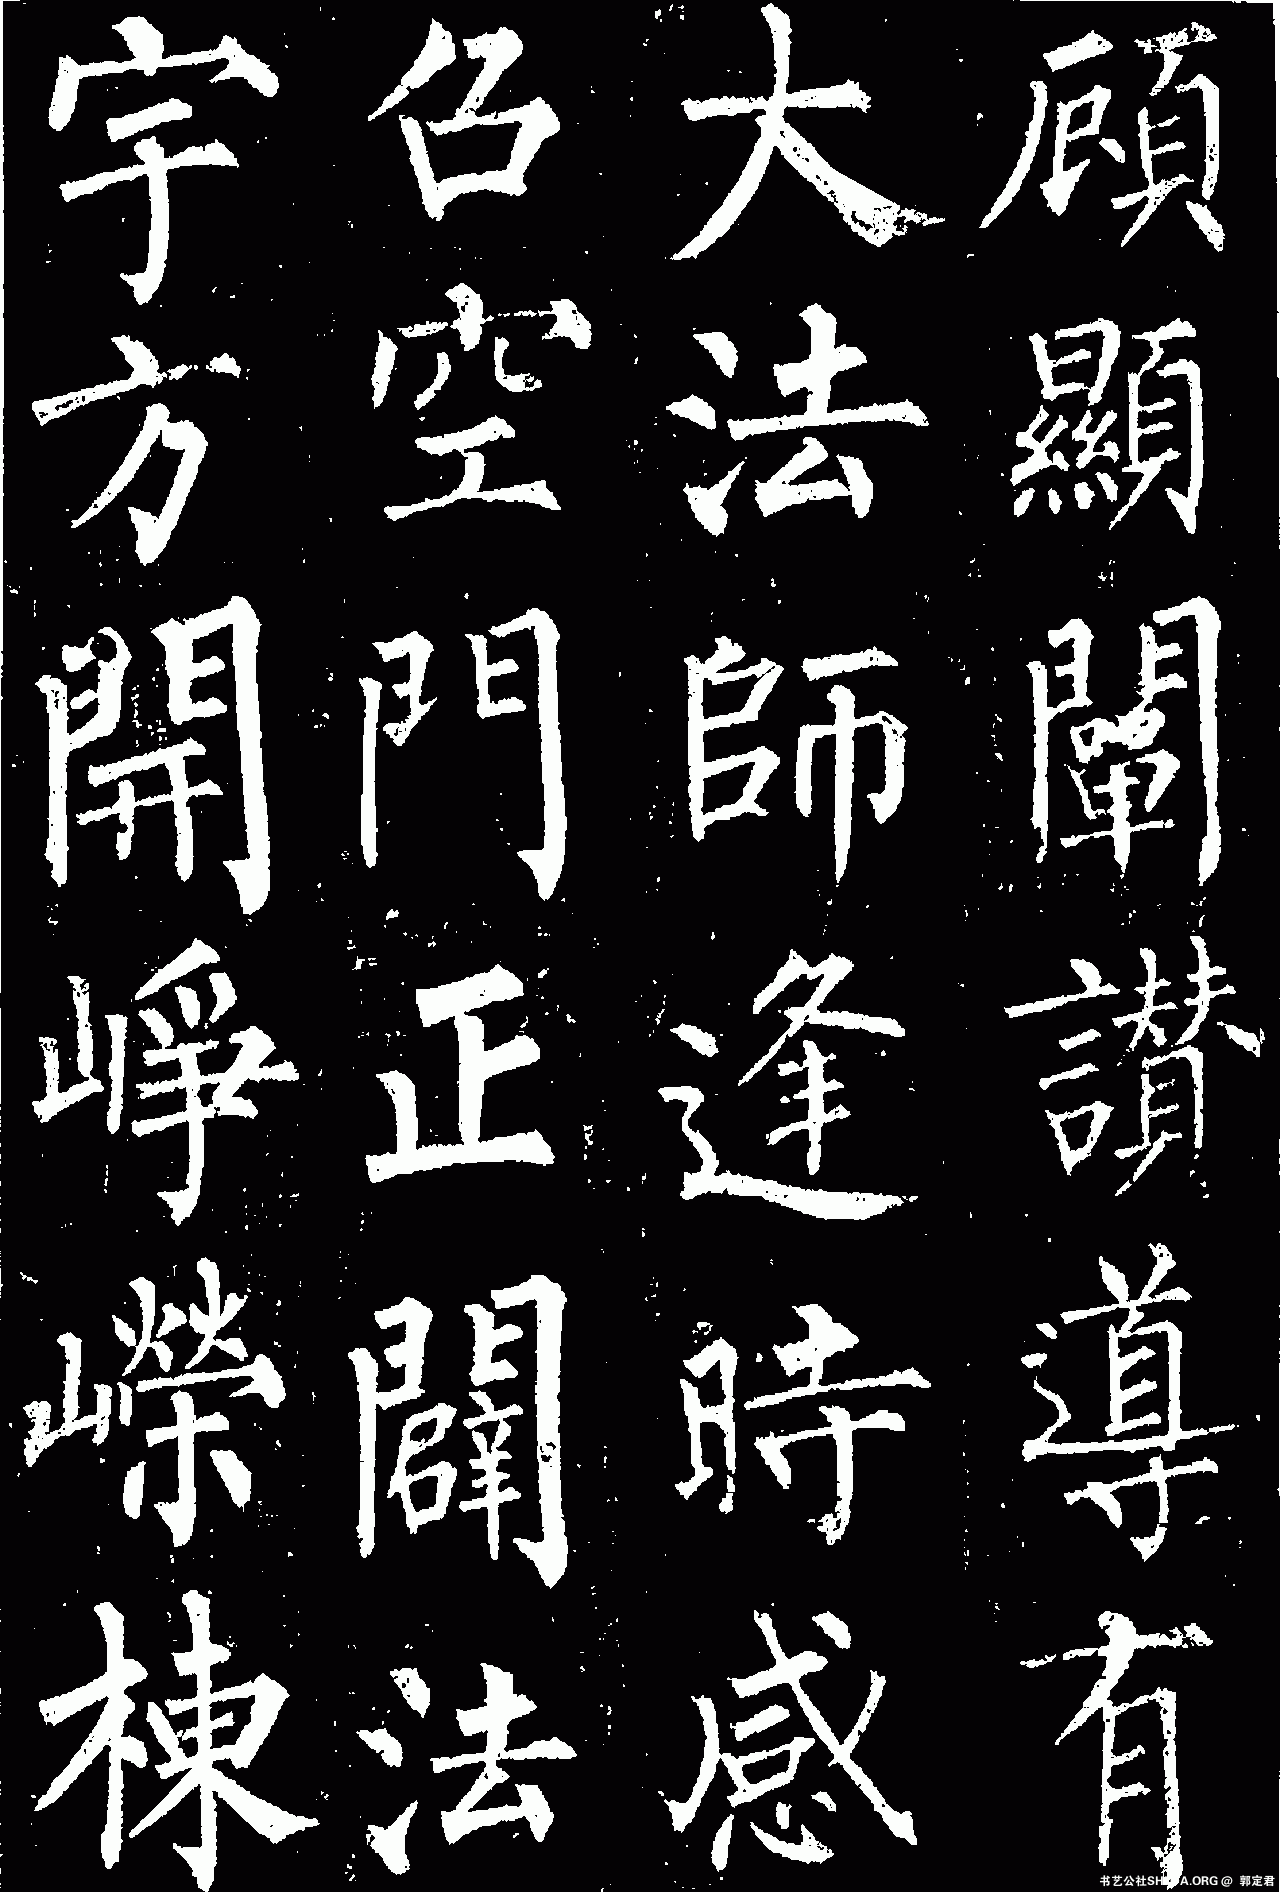 顧顯闡讃導有
大法師逢時感
召空門正闢法
宇方開崢嶸棟
书艺公社SHUFA.ORG @ 郭定君